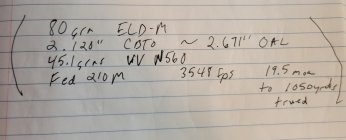 80 grn ELD-M
2.120" CBTO ~ 2.671" OAL
45.1 grns VV N560
Fed 210M 3548 fps 19.5 moa
to 1050 yards
trued